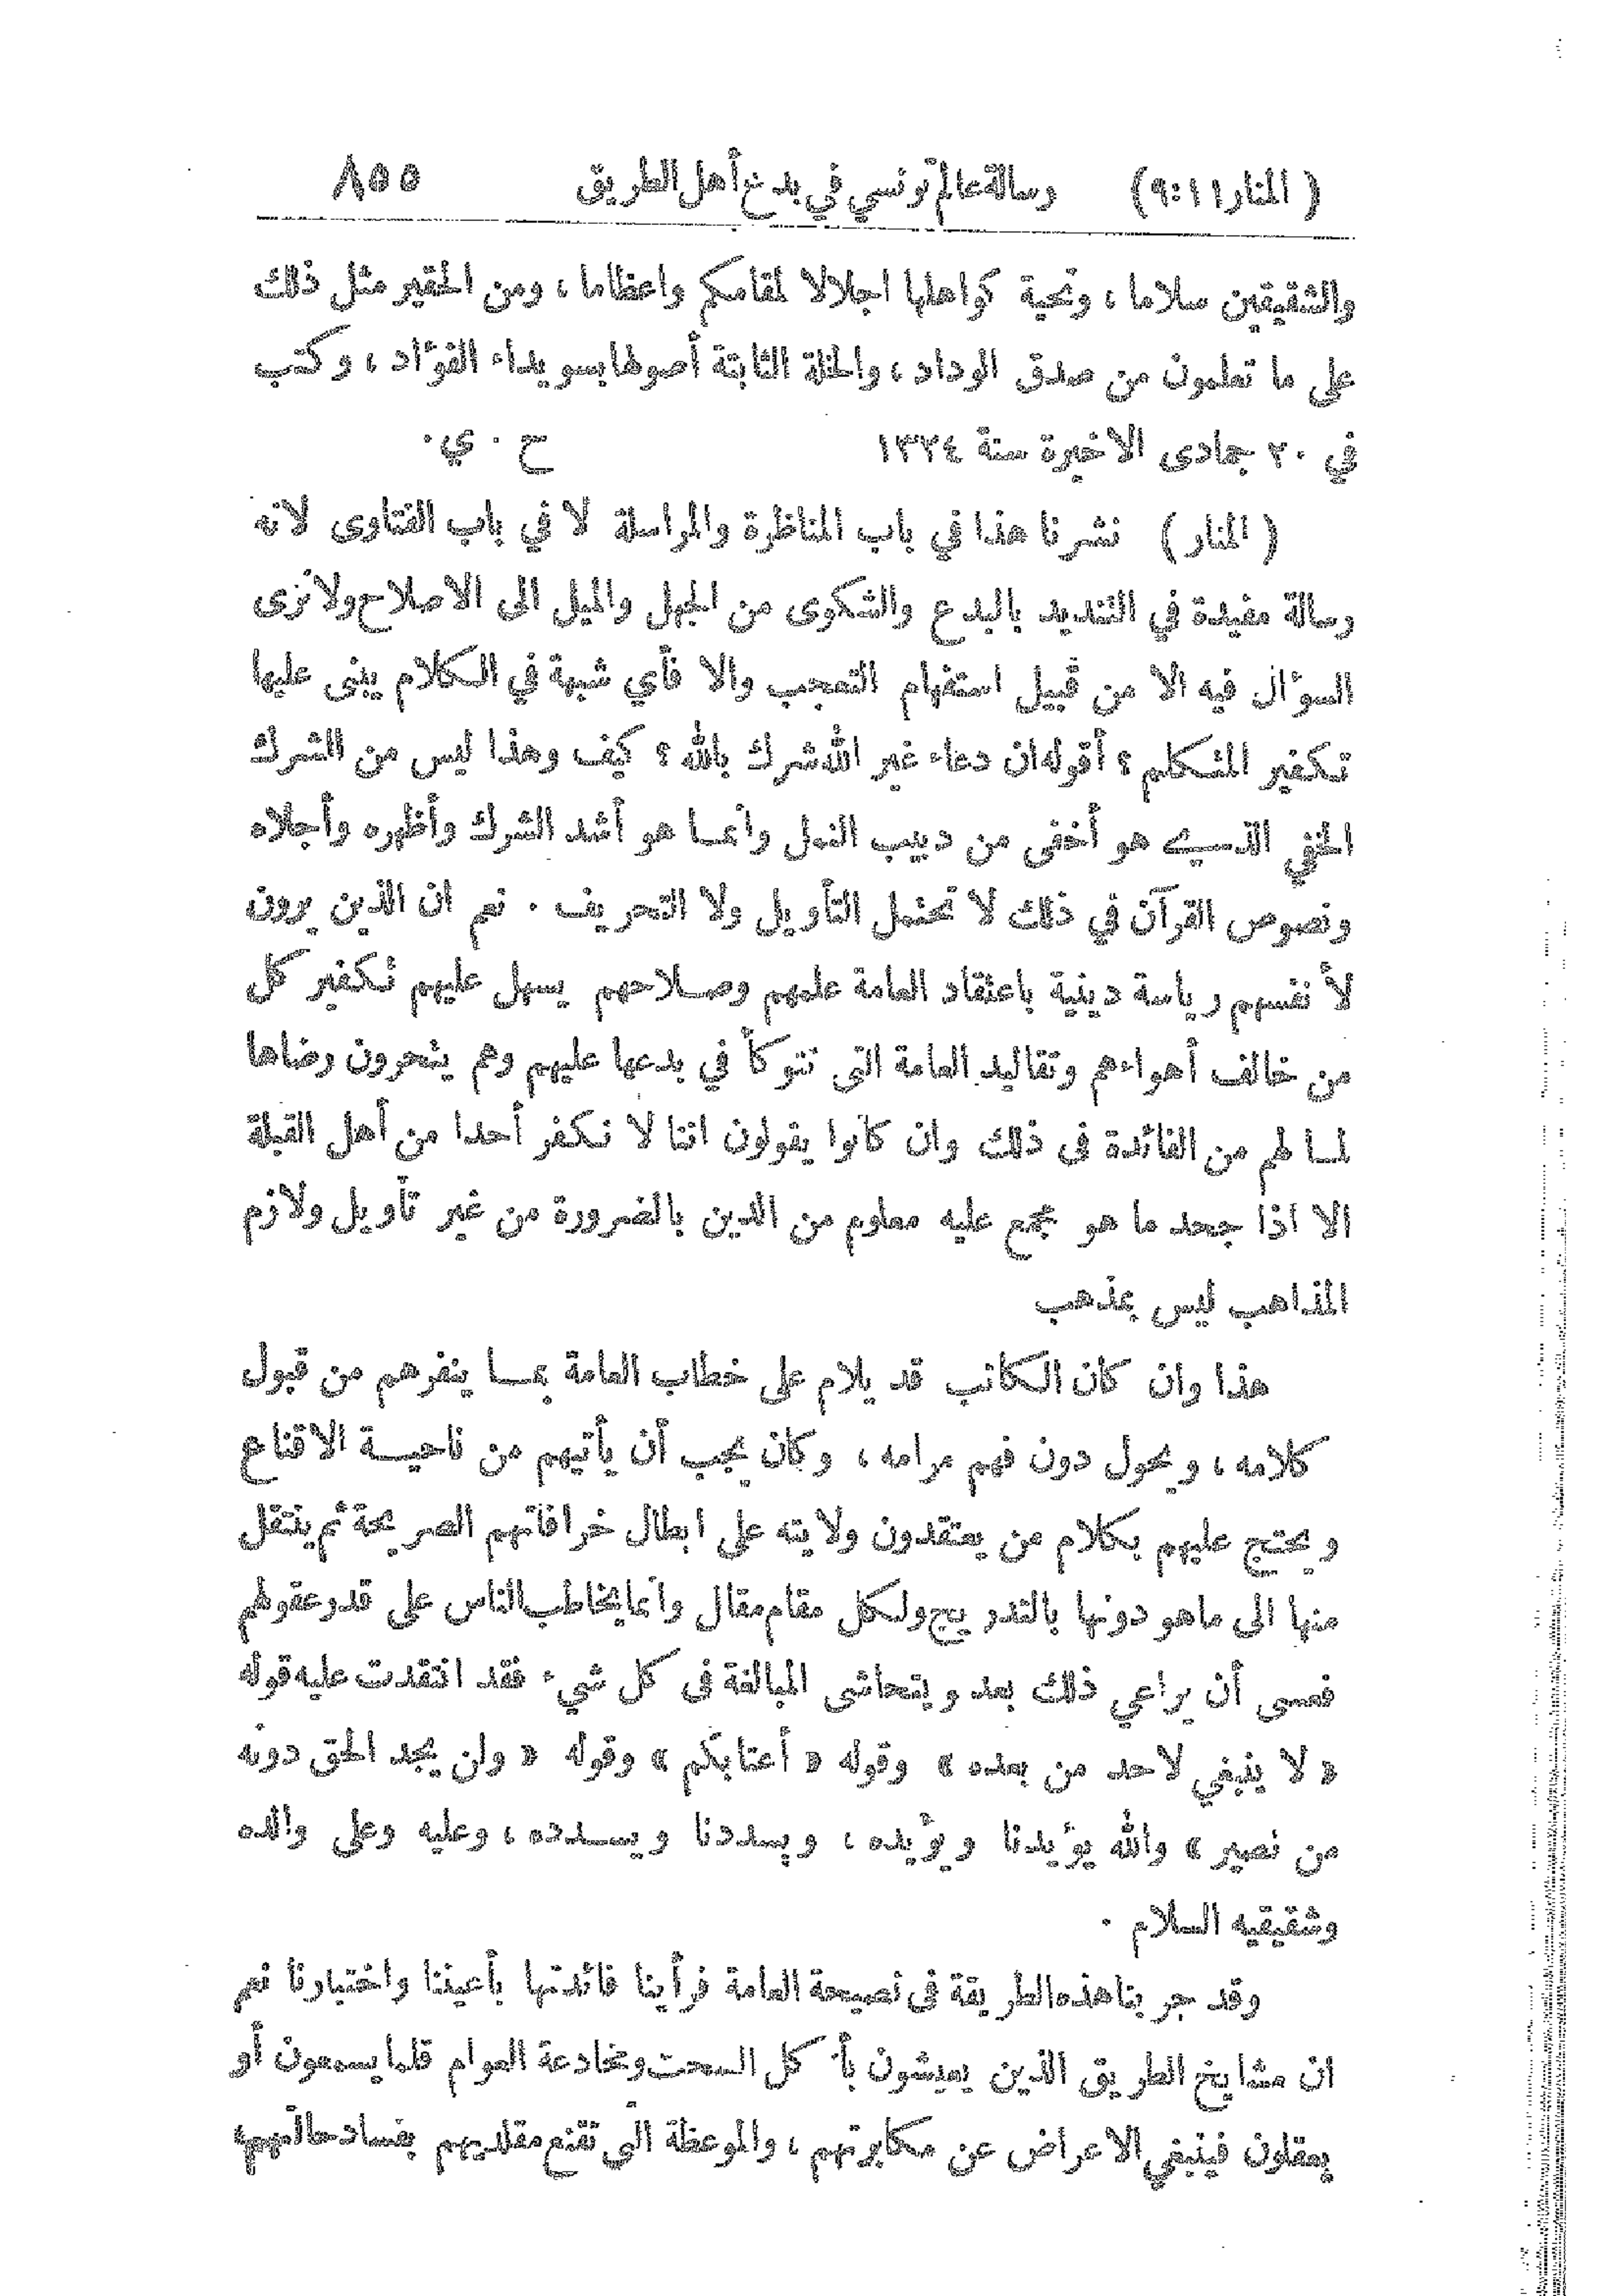 (المنار ١١:٩) رسالة عالم تونسي في بدع أهل الطريق ٨٥٥
والشقيقين سلاما ، وتحية كواهلها اجلالا لمقامكم واعظاما ، ومن الحقير مثل ذلك
على ما تعلمون من صدق الوداد ، والخلة الثابتة أصولها بسويداء الفؤاد ، وكتب
في ٢٠ جمادى الاخيرة سنة ١٣٢٤ ح . ي .
( المنار ) نشرنا هذا في باب المناظرة والمراسلة لا في باب الفتاوى لانه
رسالة مفيدة في التنديد بالبدع والشكوى من الجهل والميل الى الاصلاح ولا نرى
السؤال فيه الا من قبيل استفهام التعجب والا فأي شبهة في الكلام يبنى عليها
تكفير المتكلم ؟ أقوله ان دعاء غير الله شرك بالله ؟ كيف وهذا ليس من الشرك
الخفي الذي هو أخفى من دبيب النمل وانما هو أشد الشرك وأظهره وأجلاه
ونصوص القرآن في ذلك لا تحتمل التأويل ولا التحريف . نعم ان الذين يرون
لأنفسهم رياسة دينية باعتقاد العامة علمهم وصلاحهم يسهل عليهم تكفير كل
من خالف أهواءهم وتقاليد العامة التي تتوكأ في بدعها عليهم وهم يتحرون رضاها
لما لهم من الفائدة في ذلك وان كانوا يقولون اننا لا نكفر أحدا من أهل القبلة
الا اذا جحد ما هو مجمع عليه معلوم من الدين بالضرورة من غير تأويل ولازم
المذاهب ليس بمذهب
هذا وان كان الكاتب قد يلام على خطاب العامة بما ينفرهم من قبول
كلامه ، ويحول دون فهم مرامه ، وكان يجب أن يأتيهم من ناحية الاقناع
ويحتج عليهم بكلام من يعتقدون ولايته على ابطال خرافاتهم الصريحة ثم ينتقل
منها الى ماهو دونها بالتدريج ولكل مقام مقال وانما يخاطب الناس على قدر عقولهم
فعسى أن يراعي ذلك بعد ويتحاشى المبالغة في كل شيء فقد انتقدت عليه قوله
« لا ينبغي لاحد من بعده » وقوله « أعتابكم » وقوله « ولن يجد الحق دونه
من نصير » والله يؤيدنا ويؤيده ، ويسددنا ويسدده ، وعليه وعلى والده
وشقيقيه السلام .
وقد جربنا هذه الطريقة في نصيحة العامة فرأينا فائدتها بأعيننا واختبارنا نعم
ان مشايخ الطريق الذين يعيشون بأكل السحت ومخادعة العوام قلما يسمعون أو
يعقلون فينبغي الاعراض عن مكابرتهم ، والموعظة التي تقنع مقلديهم بفساد حالتهم ،